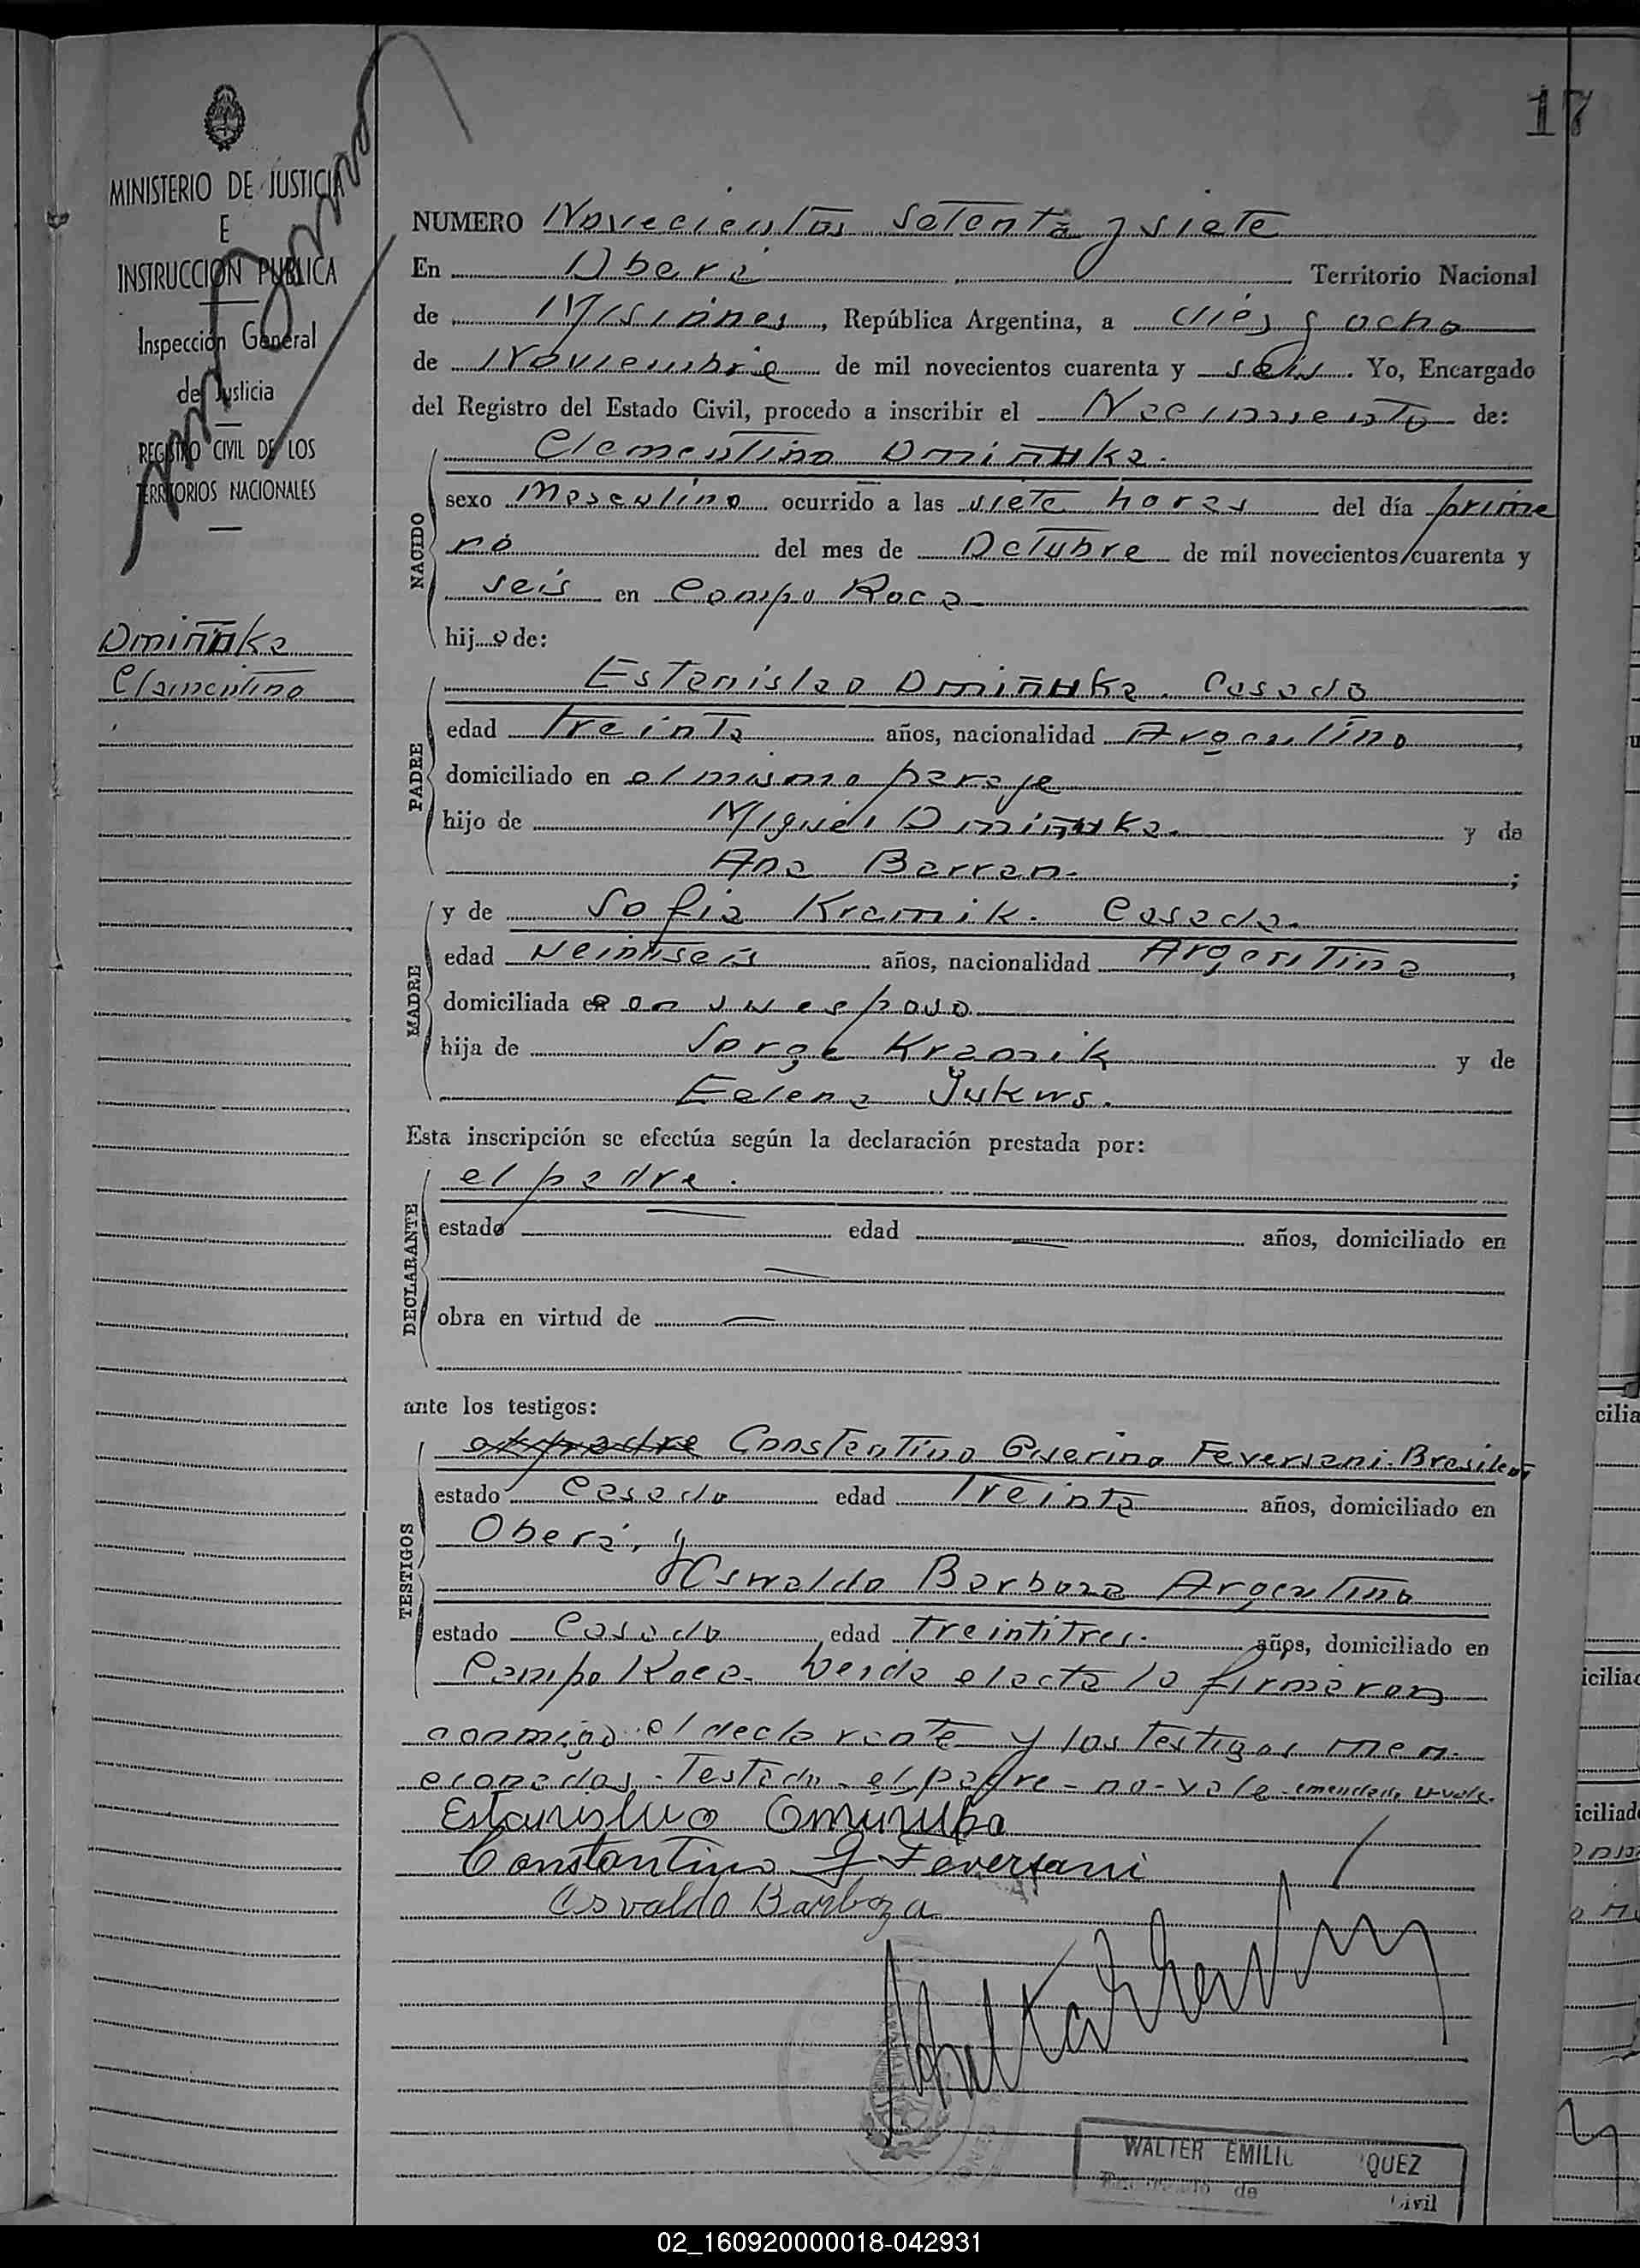 17
MINISTERIO DE JUSTICIA
E
INSTRUCCION PUBLICA
Inspección General
de Justicia
REGISTRO CIVIL DE LOS
TERRITORIOS NACIONALES
Clementino
NUMERO Novecientos setenta y siete
En Oberá Territorio Nacional
de Misiones, República Argentina, a diés y ocho
de Noviembre de mil novecientos cuarenta y seis. Yo, Encargado
del Registro del Estado Civil, procedo a inscribir el Nacimiento de:
Clementino
NACIDO
sexo Masculino ocurrido a las siete horas del día prime
ro del mes de Octubre de mil novecientos cuarenta y
seis en Campo Roca
hijo de:
PADRE
Estanislao Casado
edad treinta años, nacionalidad Argentino,
domiciliado en el mismo paraje
hijo de Miguel y de
Ana Barran.;
MADRE
y de Sofia Kramik. Casada.
edad veintiseis años, nacionalidad Argentina,
domiciliada con su esposo
hija de Jorge Kramik y de
Eelena
Esta inscripción se efectúa según la declaración prestada por:
DECLARANTE
el padre.
estado edad años, domiciliado en
obra en virtud de
ante los testigos:
TESTIGOS
el padre Constantino Guerino Feversani. Brasilero
estado Casado edad Treinta años, domiciliado en
Oberá, y
Oswaldo Barboza Argentino
estado Casado, edad treintitres. años, domiciliado en
Campo Roca. Leida el acta la firmaron
conmigo el declarante y los testigos men-
cionados. Testado- el padre- no- vale-
Constantino G Feversani
Osvaldo Barboza
WALTER EMILIO QUEZ
de Civil
02_160920000018-042931